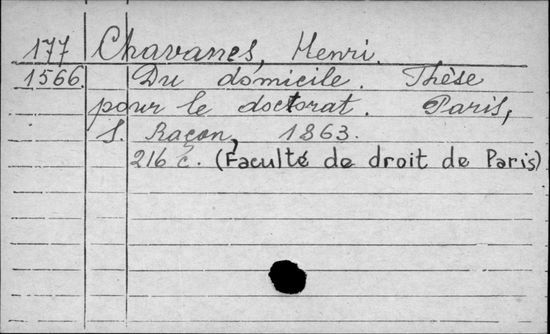 177 Chavanes, Henri.
1566. Du domicile. Thèse
pour le doctorat. Paris,
S. Raçon, 1863.
216 c. (Faculté de droit de Paris)